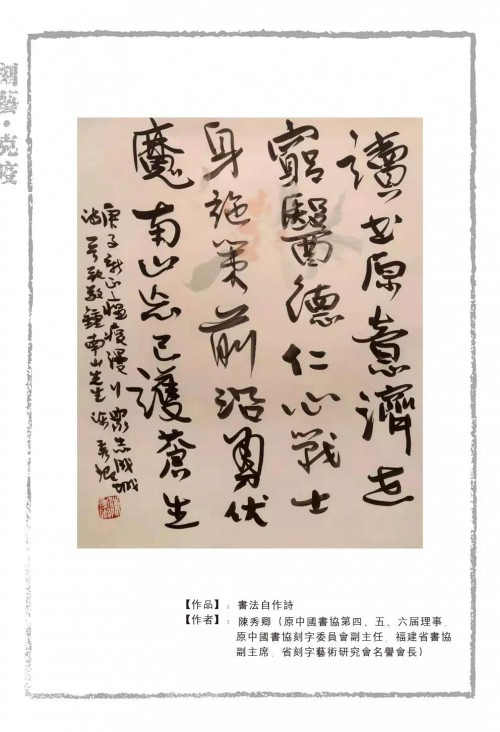 刻藝·克疫
讀書原意濟世
窮醫德仁心戰士
身施策前沿勇伏
魔南山忘己護蒼生
庚子新正瘟疫漫 眾志成城
致敬鍾南山先生 陳秀卿
【作品】:書法自作詩
【作者】:陳秀卿(原中國書協第四、五、六屆理事、
原中國書協刻字委員會副主任、福建省書協
副主席、省刻字藝術研究會名譽會長)